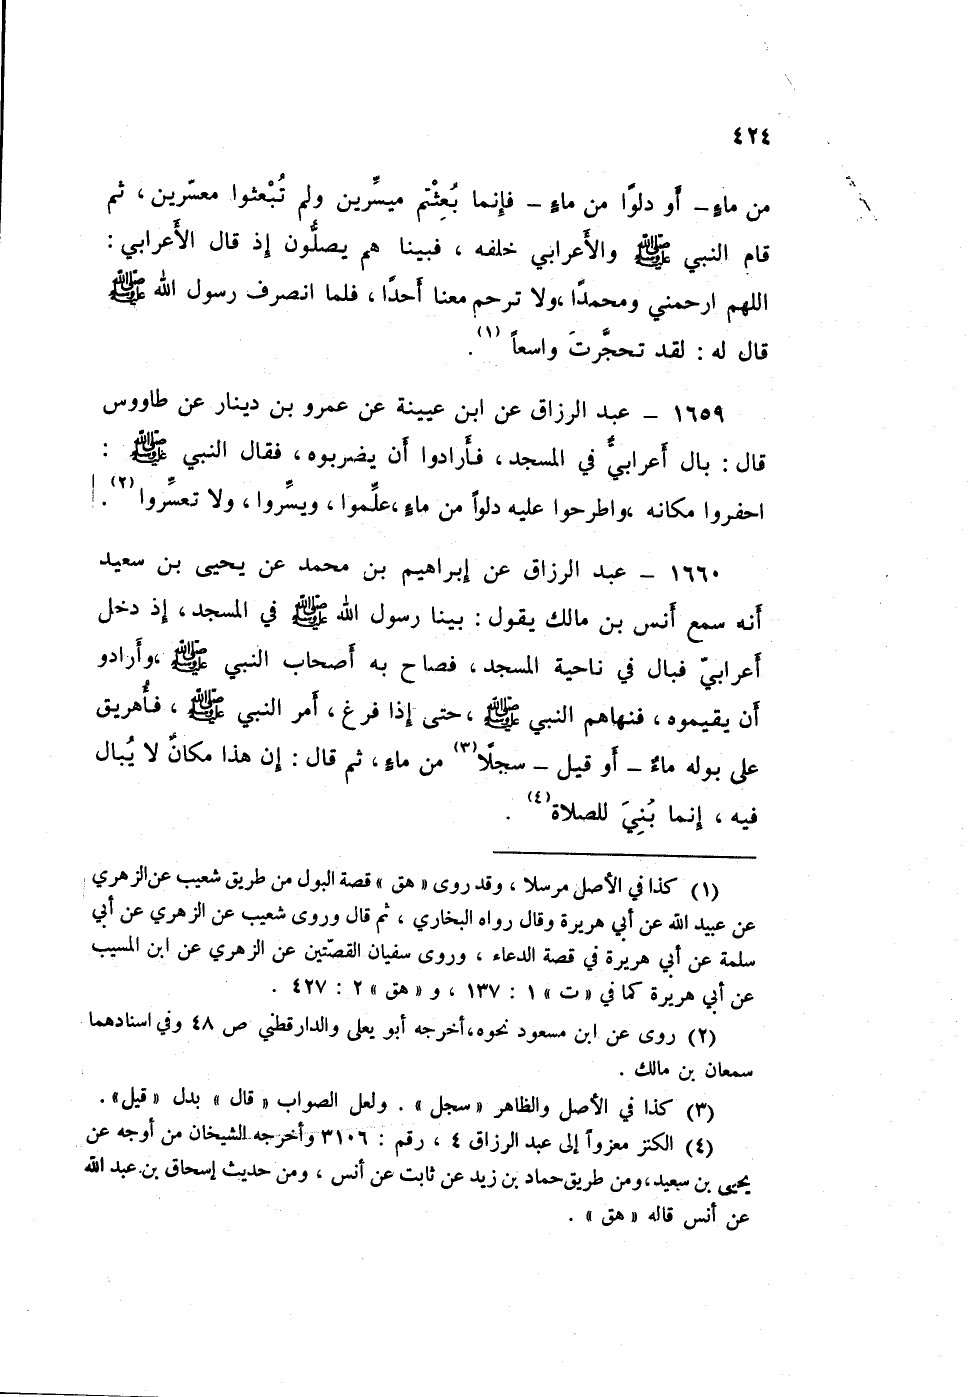 ٤٢٤
من ماءٍ – أَو دلوًا من ماءٍ – فإنما بُعِثْتم ميسِّرين ولم تُبْعثوا معسّرين ، ثم
قام النبي ﷺ والأَعرابي خلفه ، فبينا هم يصلُّون إذ قال الأَعرابي :
اللهم ارحمني ومحمدًا ،ولا ترحم معنا أَحدًا ، فلما انصرف رسول الله ﷺ
قال له : لقد تحجَّرتَ واسعاً (١) .
١٦٥٩ – عبد الرزاق عن ابن عيينة عن عمرو بن دينار عن طاووس
قال : بال أَعرابيٌّ في المسجد ، فأَرادوا أَن يضربوه ، فقال النبي ﷺ :
احفروا مكانه ،واطرحوا عليه دلواً من ماءٍ ،علِّموا ، ويسِّروا ، ولا تعسِّروا (٢) .
١٦٦٠ – عبد الرزاق عن إبراهيم بن محمد عن يحيى بن سعيد
أَنه سمع أَنس بن مالك يقول : بينا رسول الله ﷺ في المسجد ، إذ دخل
أَعرابيّ فبال في ناحية المسجد ، فصاح به أَصحاب النبي ﷺ ،وأَرادو
أَن يقيموه ، فنهاهم النبي ﷺ ،حتى إذا فرغ ، أَمر النبي ﷺ ، فأُهريق
على بوله ماءٌ – أَو قيل – سجلًا (٣) من ماءٍ ، ثم قال : إن هذا مكانٌ لا يُبال
فيه ، إنما بُنِيَ للصلاة (٤) .
(١) كذا في الأصل مرسلا ، وقد روى « هق » قصة البول من طريق شعيب عن الزهري
عن عبيد الله عن أبي هريرة وقال رواه البخاري ، ثم قال وروى شعيب عن الزهري عن أبي
سلمة عن أبي هريرة في قصة الدعاء ، وروى سفيان القصّتين عن الزهري عن ابن المسيب
عن أبي هريرة كما في « ت » ١ : ١٣٧ ، و « هق » ٢ : ٤٢٧ .
(٢) روى عن ابن مسعود نحوه ،أخرجه أبو يعلى والدارقطني ص ٤٨ وفي اسنادهما
سمعان بن مالك .
(٣) كذا في الأصل والظاهر « سجل » . ولعل الصواب « قال » بدل « قيل» .
(٤) الكنز معزواً إلى عبد الرزاق ٤ ، رقم : ٣١٠٦ وأخرجه الشيخان من أوجه عن
يحيى بن سعيد ،ومن طريق حماد بن زيد عن ثابت عن أنس ، ومن حديث إسحاق بن عبد الله
عن أنس قاله « هق » .